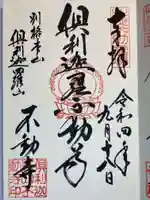 奉拝
令和四年
九月
俱利迦羅不動尊
別格本山
俱利迦羅山
不動寺